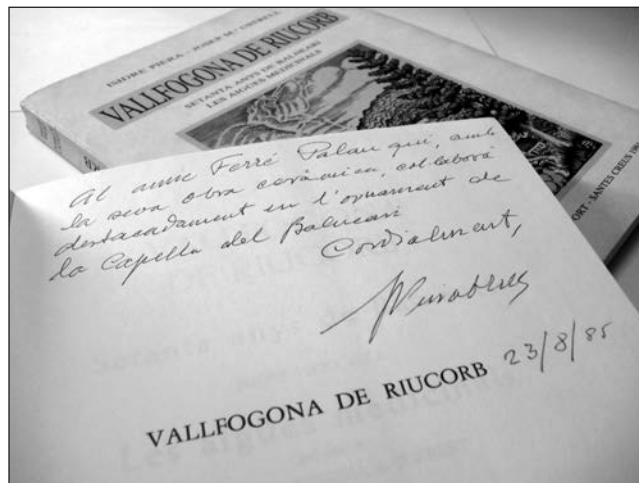 ISIDRE PIERA - JOSEP Mª
VALLFOGONA DE RIUCORB
SETANTA ANYS DE BALNEARI
LES AIGÜES MEDICINALS
ORT - SANTES CREUS
Al amic Ferré Palau qui, amb
la seva obra ceràmica, col·laborà
destacadament en l'ornament de
la Capella del Balneari
Cordialment,
23/8/85
VALLFOGONA DE RIUCORB